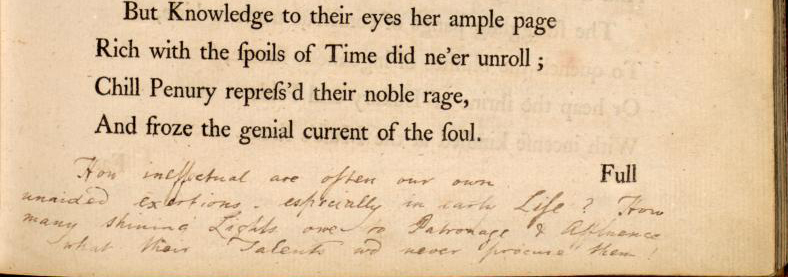 But Knowledge to their eyes her ample page
Rich with the ſpoils of Time did ne'er unroll ;
Chill Penury repreſs'd their noble rage,
And froze the genial current of the ſoul.
Full
How ineffectual are often our own
unaided exertions. especially in early Life ? How
many shining Lights owe to Patronage & Affluence
what their Talents wd never procure them !